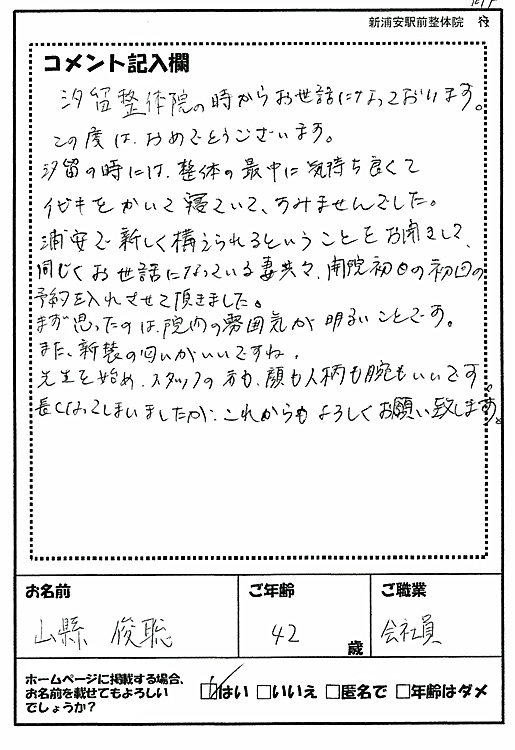 新浦安駅前整体院
コメント記入欄
汐留整体院の時からお世話になっております。
この度は、おめでとうございます。
汐留の時には、整体の最中に気持ち良くて
イビキをかいて寝ていて、すみませんでした。
浦安で新しく構えられるということをお聞きして、
同じくお世話になっている妻共々、開院初日の初回の
予約を入れさせて頂きました。
まず思ったのは、院内の雰囲気が明るいことです。
また、新装の匂いがいいですね。
先生を始め、スタッフの方も、顔も人柄も腕もいいです。
長くなってしまいましたが、これからもよろしくお願い致します。
お名前 ご年齢 ご職業
山縣 俊聡 42 歳 会社員
ホームページに掲載する場合、
お名前を載せてもよろしい
でしょうか？
□はい □いいえ □匿名で □年齢はダメ